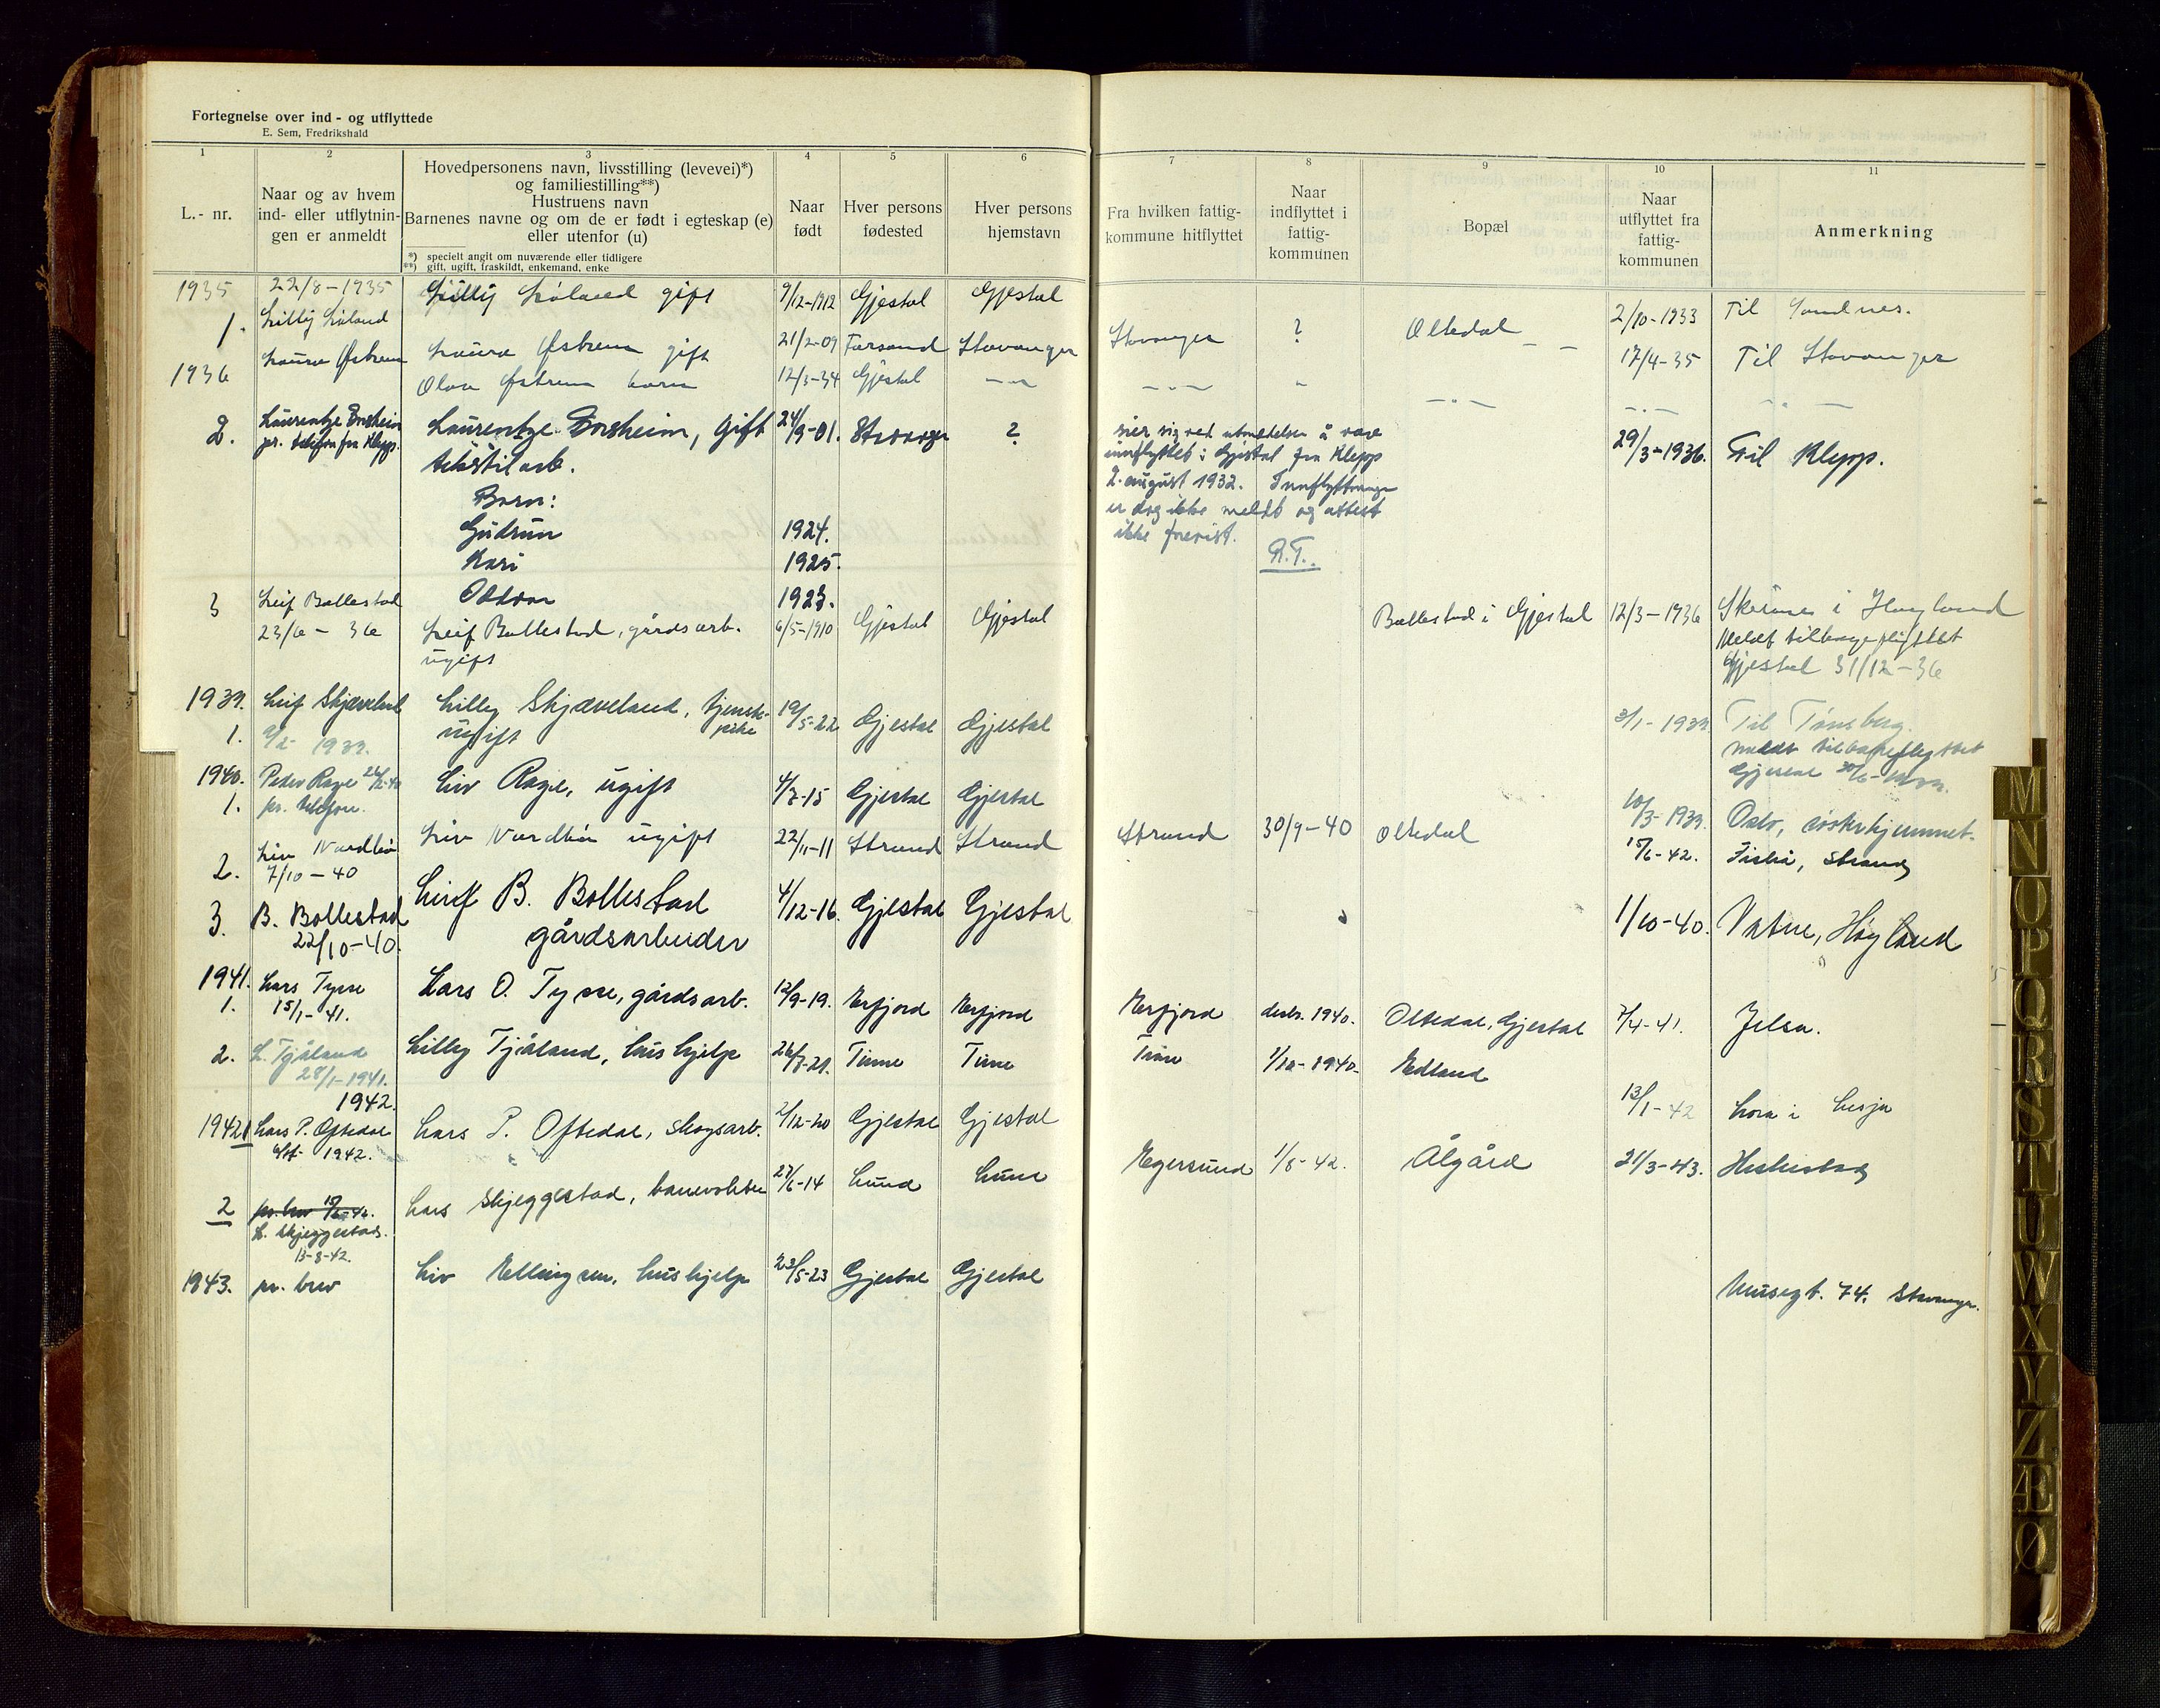 Fortegnelse over ind - og utflyttede
E. Sem, Fredrikshald
1 2 3 4 5 6 7 8 9 10 11
L.- nr.
Naar og av hvem
ind- eller utflytnin-
gen er anmeldt
Hovedpersonens navn, livsstilling (levevei)*)
og familiestilling**)
Hustruens navn
Barnenes navne og om de er født i egteskap (e)
eller utenfor (u)
*) specielt angit om nuværende eller tidligere
**) gift, ugift, fraskildt, enkemand, enke
Naar
født
Hver persons
fødested
Hver persons
hjemstavn
Fra hvilken fattig-
kommune hitflyttet
Naar
indflyttet i
fattig-
kommunen
Bopæl
Naar
utflyttet fra
fattig-
kommunen
Anmerkning
1935 22/8-1935 Lilly Løland gift 9/12-1912 Gjestal Gjestal 2/10-1933 Til Sandnes.
1. Lilly Løland
Laura Østrem Laura Østrem gift 21/2-09 Forsand Stavanger Stavanger ? Oltedal 17/4-35 Til Stavanger
1936 Olav Østrem barn 12/3-34 Gjestal -"- -"- -"- -"- -"-
2. Laurentze Borsheim Laurentze Borsheim, gift 24/9-01. Stavanger ? 29/3-1936. Til Klepp.
pr. telefon fra Klepp. tekstilarb.
sier sig ved utmeldelsen å være
innflyttet i Gjestal fra Klepp
2. august 1932. Innflyttningen
er dog ikke meldt og attest
ikke forevist.
R.T.
Barn:
Gudrun 1924.
Kari 1925.
Oddvar 1923.
3 Leif Ballestad Leif Ballestad, gårdsarb. 6/5-1910 Gjestal Gjestal Ballestad i Gjestal 12/3-1936 Skeiane i Høyland
23/6-36 ugift Meldt tilbageflyttet
Gjestal 31/12-36
1939. Leif Skjæveland Lilly Skjæveland, tjeneste- 19/5-22 Gjestal Gjestal 3/1-1939 Til Tønsberg.
1. 1939. ugift pike meldt tilbakeflyttet
Gjestal
1940. Peder Rage Liv Rage, ugift 4/7-15 Gjestal Gjestal 10/3-1939. Oslo,
1. pr. telefon.
2. Liv Nordbø Liv Nordbø ugift 22/11-11 Strand Strand Strand 30/9-40 Oltedal 15/6-42. Fiskå, Strand
7/10-40
3. B. Bollestad Leif B. Bollestad 4/12-16. Gjestal Gjestal 1/10-40. Vatne, Høyland
22/10-40. gårdsarbeider
1941. Lars Tysse Lars O. Tysse, gårdsarb. 12/9-19. Erfjord Erfjord Erfjord desbr. 1940. Oltedal, Gjestal 7/4-41. Jelsa.
1. 15/1-41.
2. L. Tjåland Lilly Tjåland, hushjelp 26/7-21. Time Time Time 1/10-1940. Edland
28/1-1941.
1942.
1942 1 Lars P. Oftedal Lars P. Oftedal, skogsarb. 2/12-20 Gjestal Gjestal 13/1-42 Lora i Lesja
1942.
2 pr. brev 15/6-42. Lars Skjeggestad, banevokter 27/6-14 Lund Lund Egersund 1/8-42. Ålgård 21/3-43. Heskestad
L. Skjeggestad.
13-8-42.
1943. pr. brev Liv Ellingsen, hushjelp 23/5-23 Gjestal Gjestal Musegt. 74. Stavanger.
M
N
O
P
Q
R
S
T
U
W
X
Y
Z
Æ
Ø